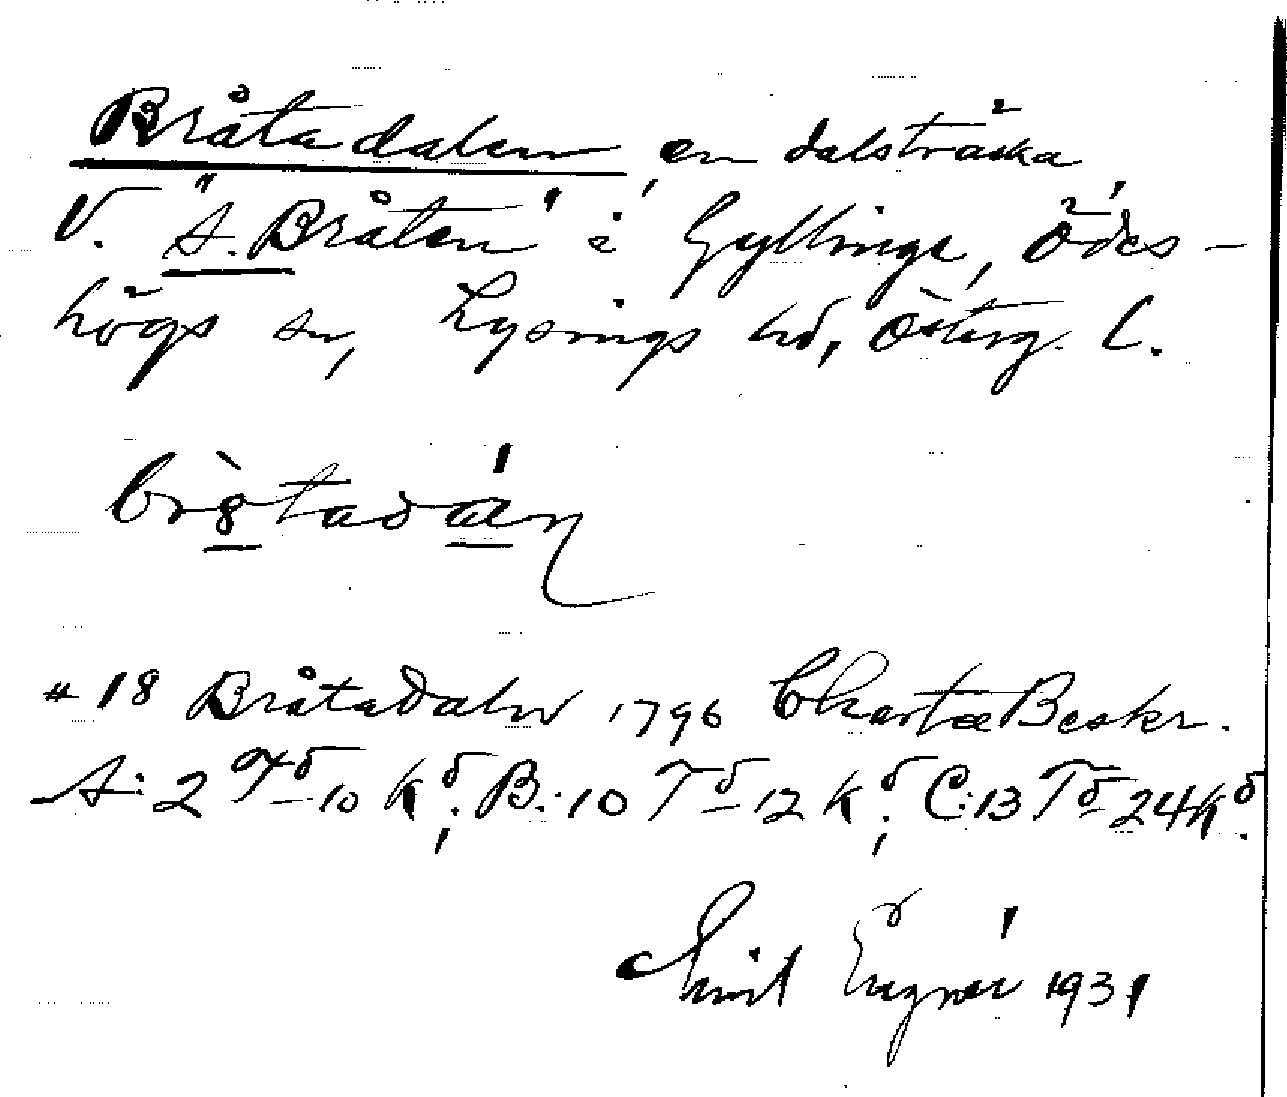 Bråtadalen, en dalsträcka
V. "S. Bråten" i Gyllinge, Ödes-
högs sn, Lysings hd, Österg. l.
# 18 Bråtadalen 1796 Charta Beskr.
A: 2 Td 10 kd; B.: 10 Td 12 kd; C: 13 Td 24 kd.
Emil 1931